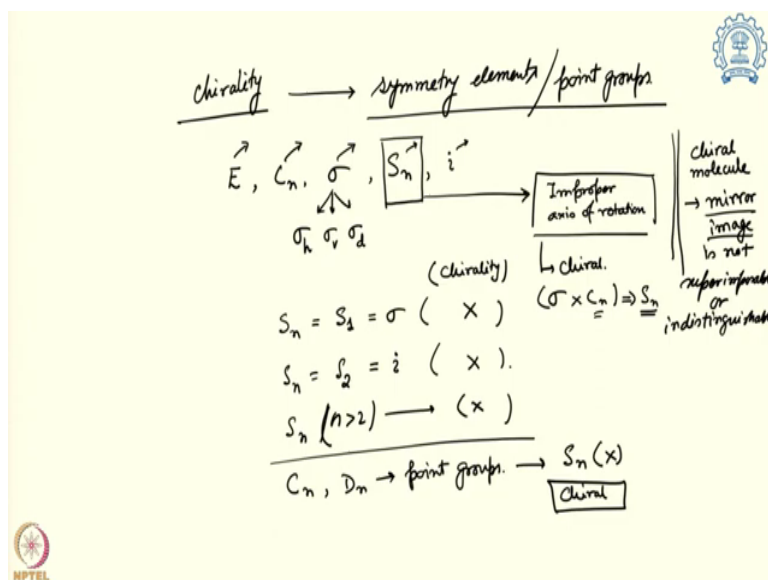 chirality → symmetry elements / point groups
E, Cn, σ, Sn, i
σh σv σd
Improper
axis of rotation
↳ chiral.
(σ × Cn) ⇒ Sn
chiral
molecule
→ mirror
image
is not
superimposable
or
indistinguishable
(chirality)
Sn = S1 = σ ( × )
Sn = S2 = i ( × ).
Sn (n>2) → ( × )
Cn, Dn → point groups. → Sn (×)
Chiral
NPTEL